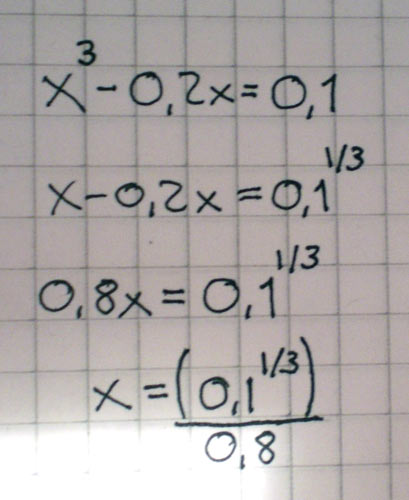 x³ - 0,2x = 0,1
x - 0,2x = 0,1^1/3
0,8x = 0,1^1/3
x = (0,1^1/3)
0,8